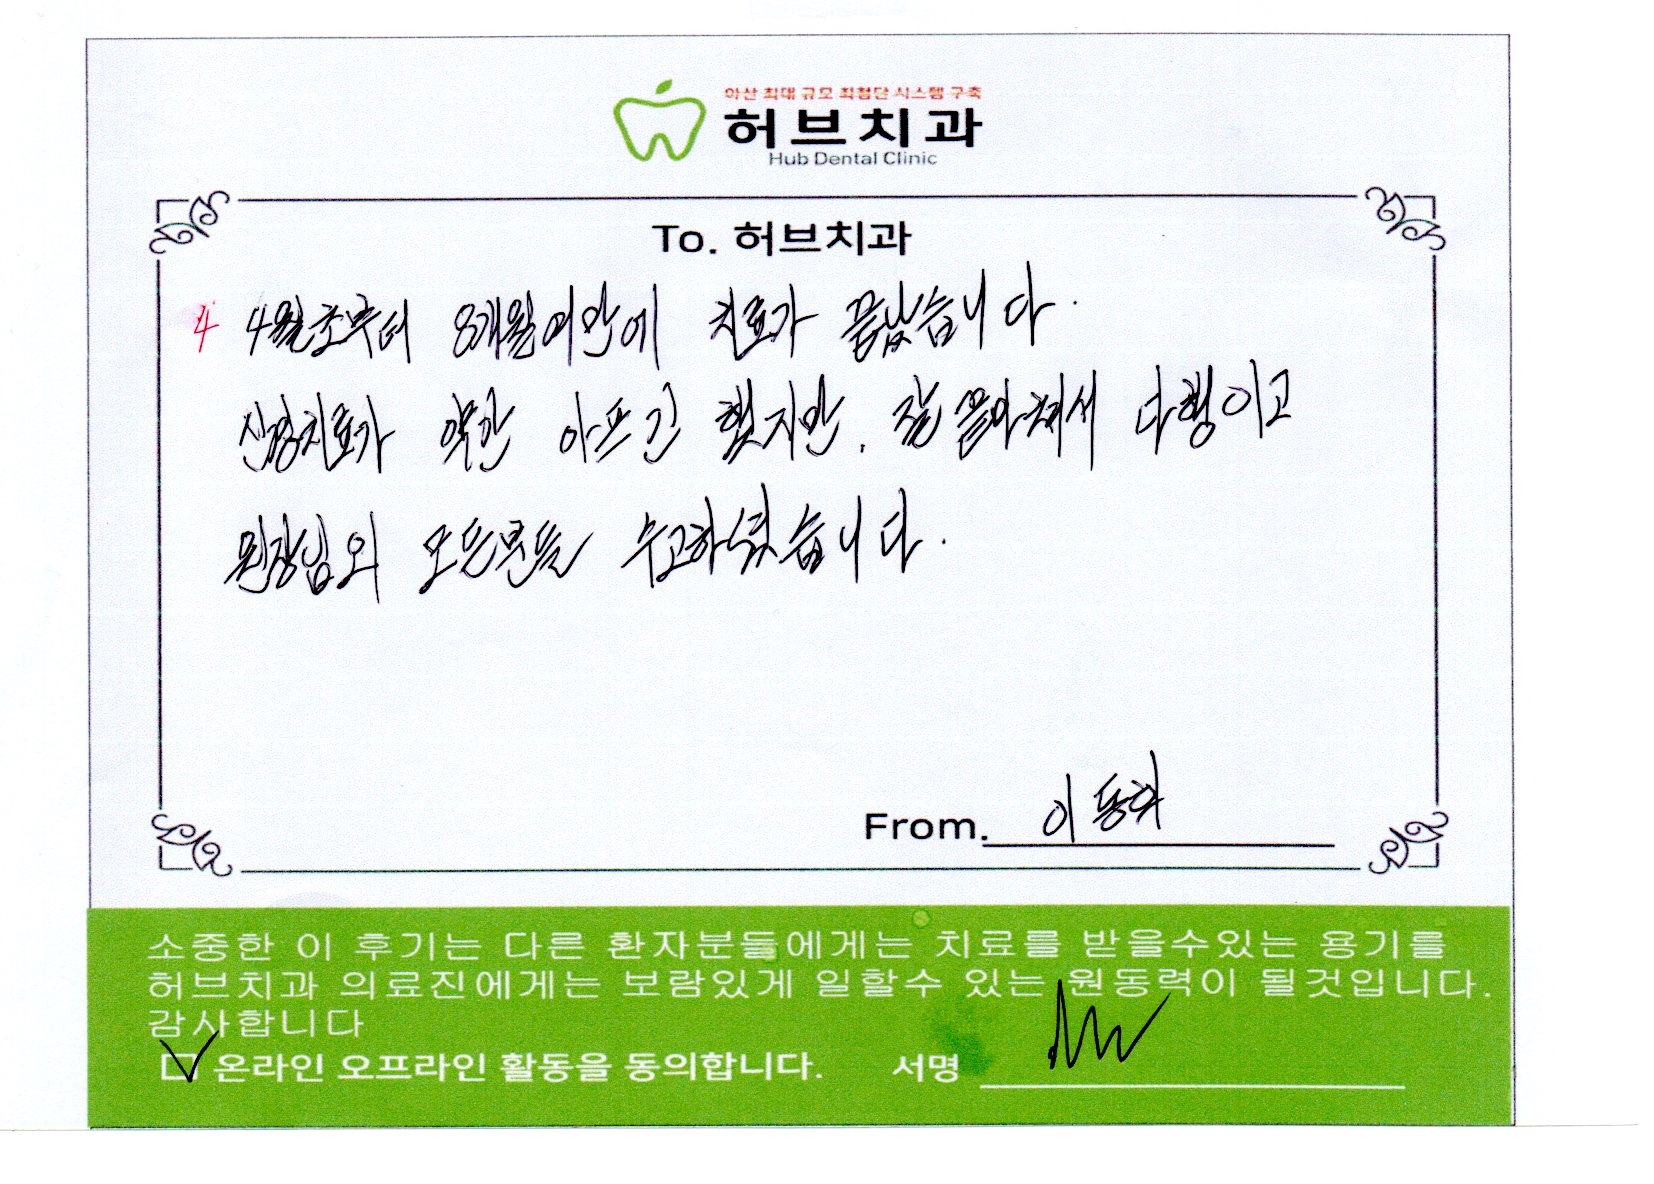 아산 최대 규모 최첨단 시스템 구축
허브치과
Hub Dental Clinic
To. 허브치과
4 4월초부터 8개월여만에 치료가 끝났습니다.
신경치료가 약간 아프긴 했지만, 잘 끝마쳐서 다행이고
원장님외 모든분들 수고하셨습니다.
From. 이동
소중한 이 후기는 다른 환자분들에게는 치료를 받을수있는 용기를
허브치과 의료진에게는 보람있게 일할수 있는 원동력이 될것입니다.
감사합니다
온라인 오프라인 활동을 동의합니다. 서명